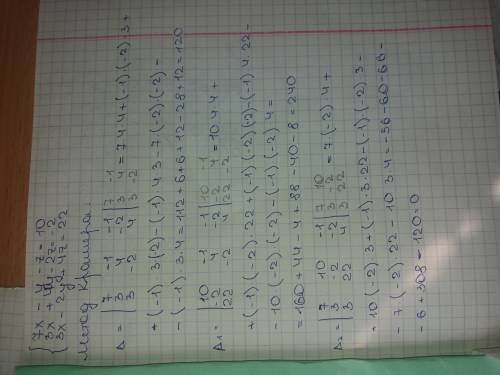 7x - y - z = 10
3x + 4y - 2z = -2
3x - 2y + 4z = 22
Метод Крамера:
Δ = | 7 -1 -1 | 7 -1
3 4 -2 | 3 4
3 -2 4 | 3 -2 = 7·4·4 + (-1)·(-2)·3 +
+ (-1)·3(-2) - (-1)·4·3 - 7·(-2)·(-2) -
- (-1)·3·4 = 112 + 6 + 6 + 12 - 28 + 12 = 120
Δ1 = | 10 -1 -1 | 10 -1
-2 4 -2 | -2 4
22 -2 4 | 22 -2 = 10·4·4 +
+ (-1)(-2)·22 + (-1)(-2)(-2) - (-1)·4·22 -
- 10·(-2)·(-2) - (-1)(-2)·4 =
= 160 + 44 - 4 + 88 - 40 - 8 = 240
Δ2 = | 7 10 -1 | 7 10
3 -2 -2 | 3 -2
3 22 4 | 3 22 = 7·(-2)·4 +
+ 10(-2)·3 + (-1)·3·22 - (-1)·(-2)·3 -
- 7·(-2)·22 - 10·3·4 = -56 - 60 - 66 -
- 6 + 308 - 120 = 0